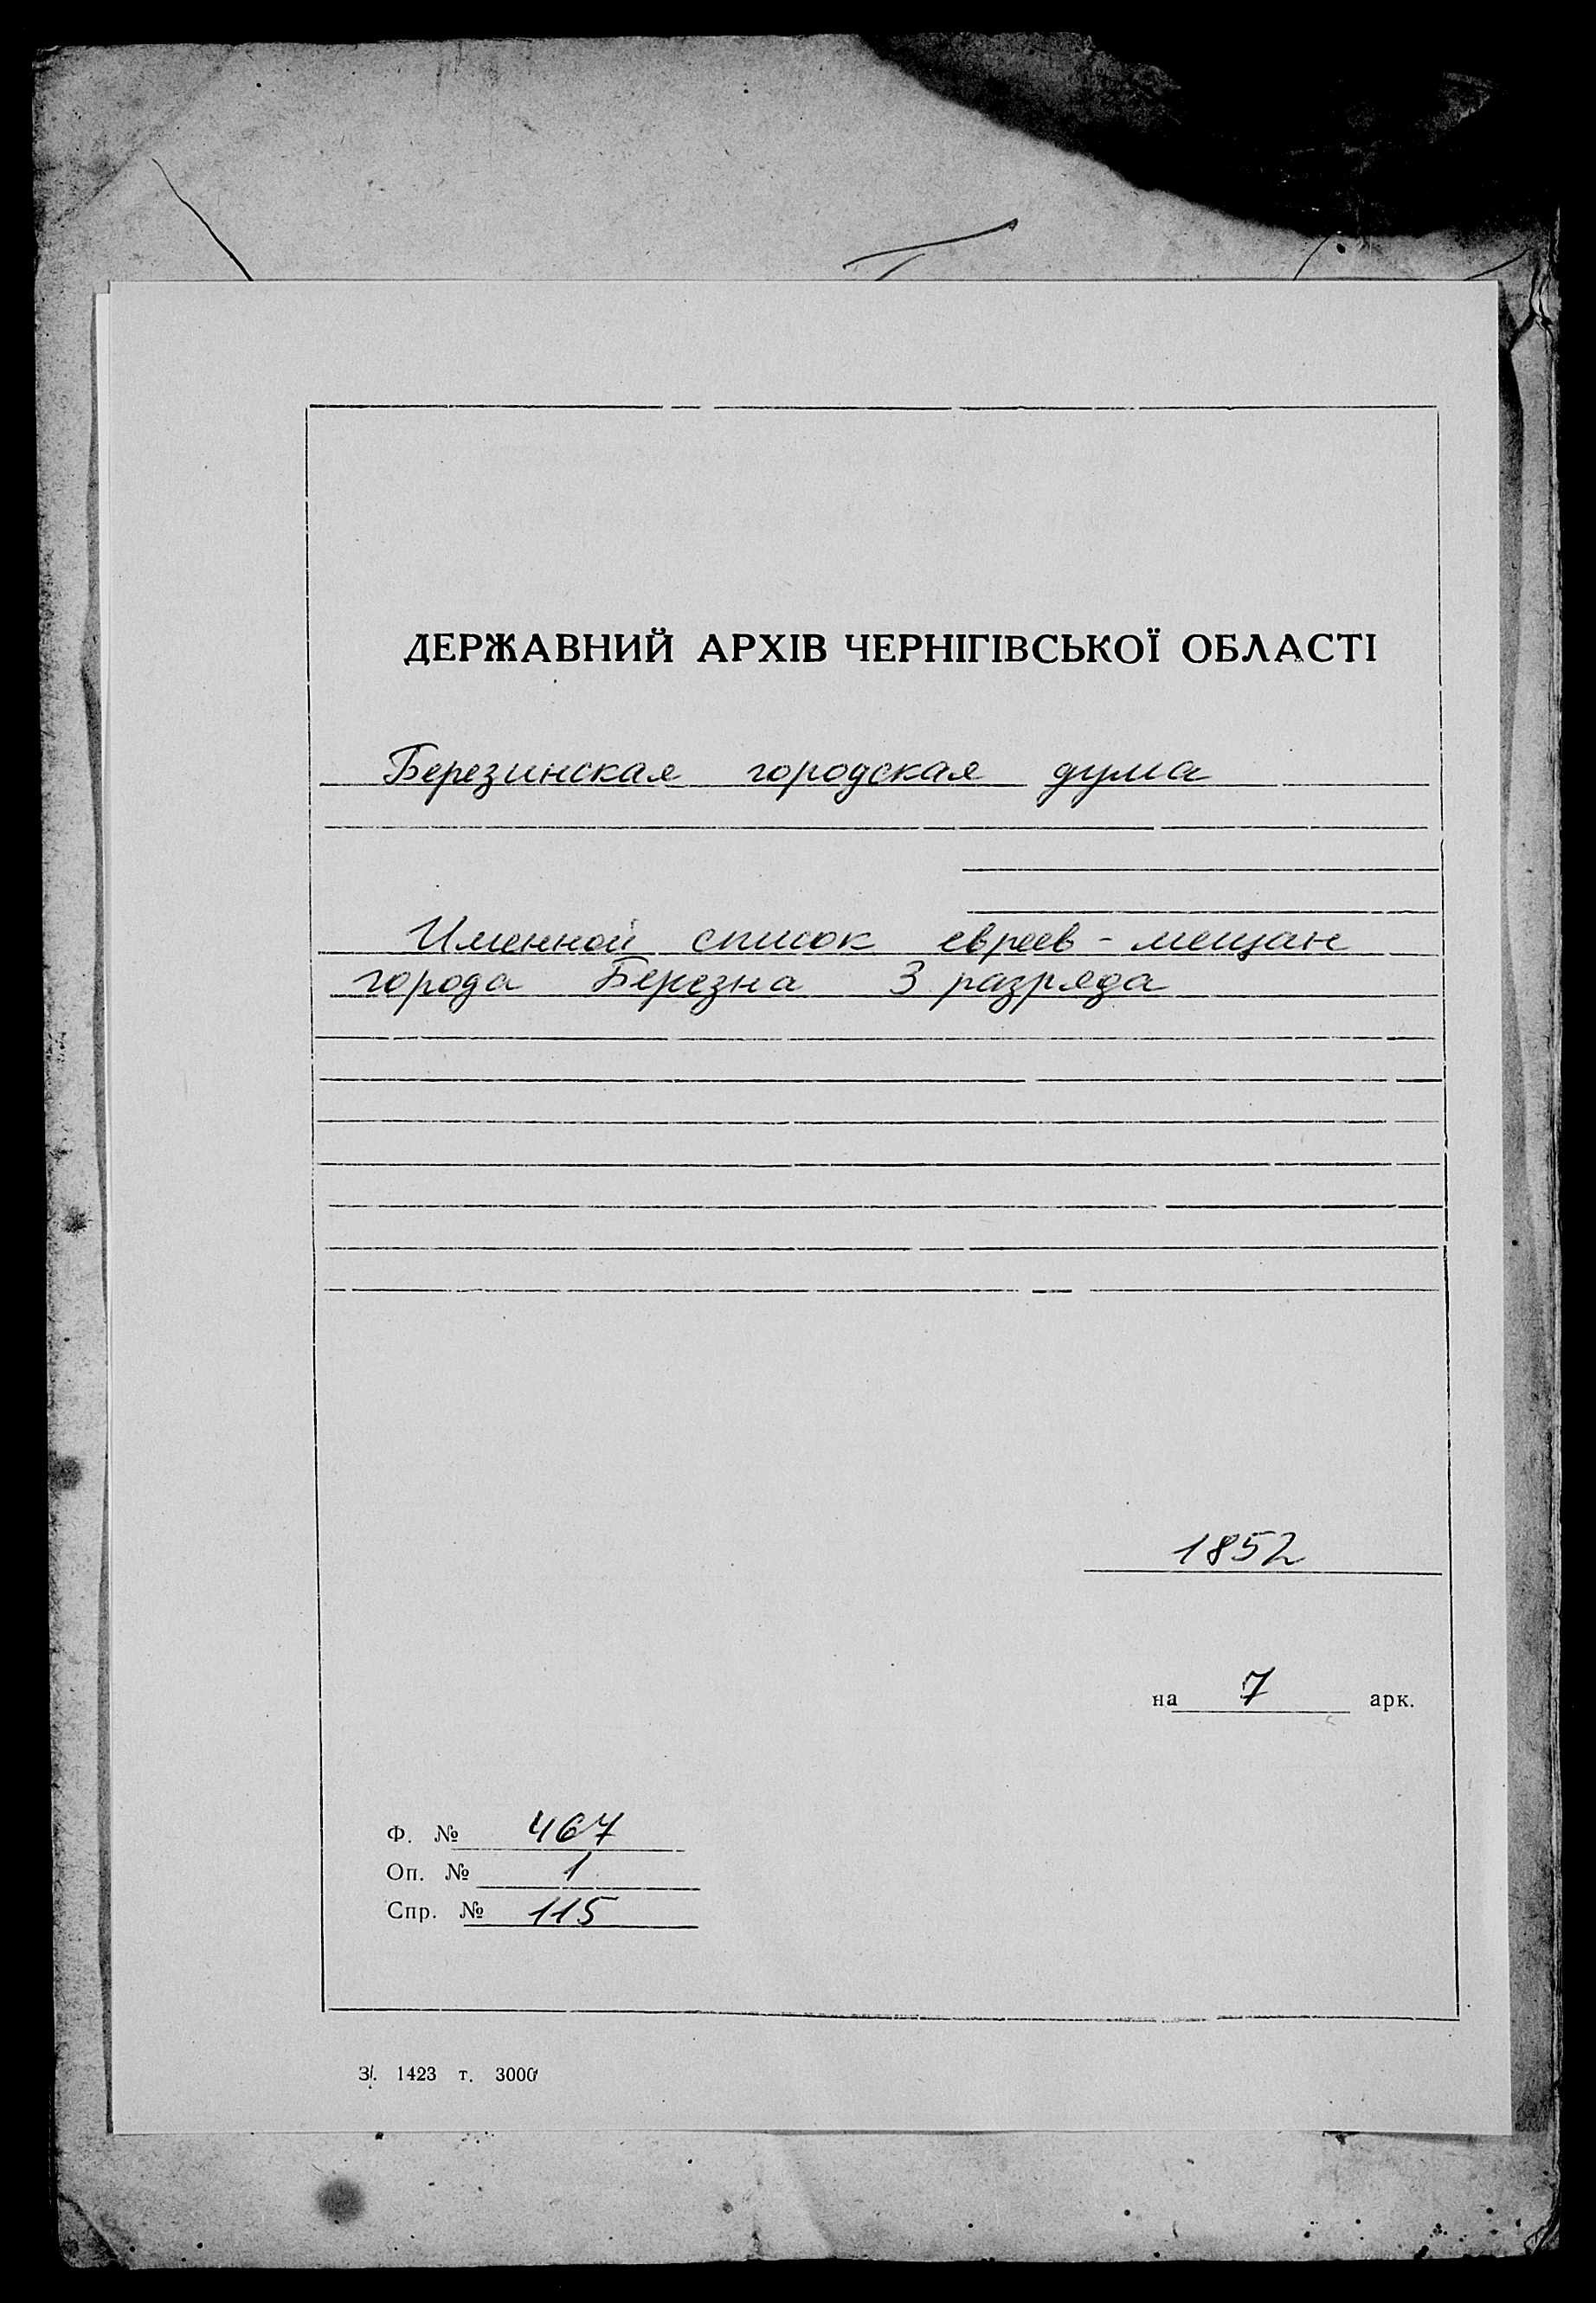 ДЕРЖАВНИЙ АРХІВ ЧЕРНІГІВСЬКОЇ ОБЛАСТІ
Березинская городская дума
Именной список евреев - мещан
города Березна 3 разряда
1852
на 7 арк.
Ф. № 467
Оп. № 1
Спр. № 115
З. 1423 т. 3000